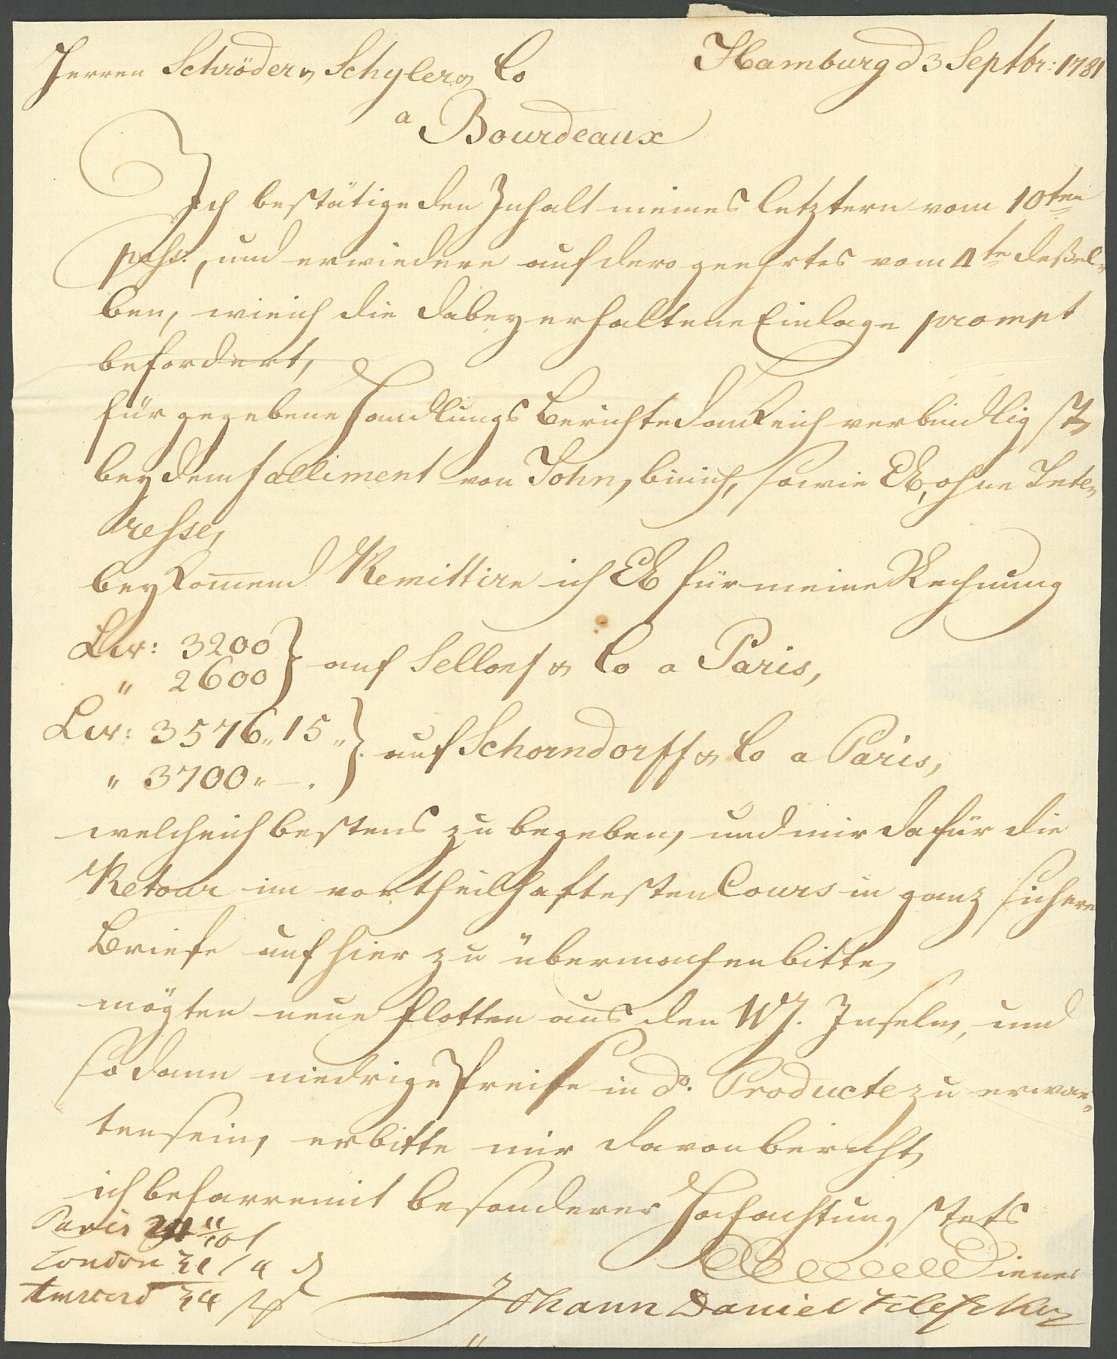 Herren Schröder & Schyler & Co
Hamburg d 3 Septbr: 1781
a Bourdeaux
Ich bestätige den Inhalt meines letztern vom 10ten
pass:, und erwiedere auf dero geehrtes vom 4te deßel-
ben, wie ich die dabey erhaltene Einlage prompt
befordert,
für gegebene Handlungs Berichte danke ich verbindligst,
bey dem falliment von John, bin ich, so wie EE, ohne Inte-
resse,
beykom̅end Remittire ich EE für meine Rechnung
Liv: 3200
" 2600 } auf Sellonf & Co a Paris,
Liv: 3576,, 15,,
" 3700,, —. } auf Schorndorff & Co a Paris,
welche ich bestens zu begeben, und mir dafür die
Retour im vortheilhaftesten Cours in ganz sichern
Briefe auf hier zu übermachen bitte,
mögten neue flotten aus den WJ. Inseln, und
so dann niedrige Preise in do. Producte zu erwar-
ten sein, erbitte mir davon bericht,
ich beharre mit besonderer Hochachtung stets
Paris
London
Diener
Johann Daniel